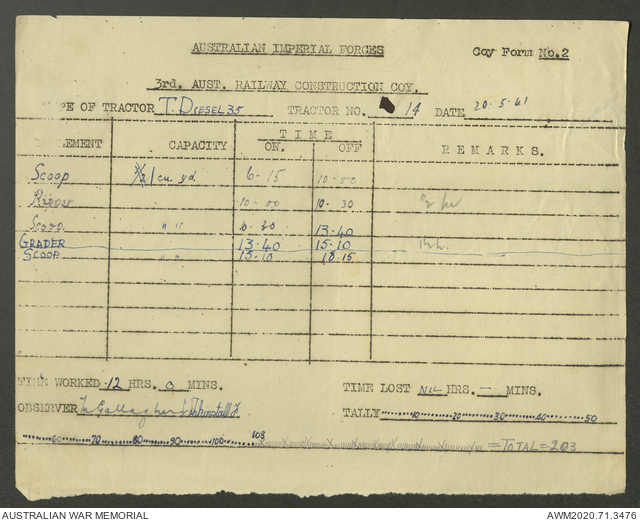 AUSTRALIAN IMPERIAL FORCES Coy Form No.2
3rd. AUST. RAILWAY CONSTRUCTION COY.
PE OF TRACTOR T. DIESEL 35 TRACTOR NO. 14 DATE 20.5.41
LEMENT CAPACITY TIME ON. OFF REMARKS.
Scoop cu. yd. 6.15 10.00
Ripper 10.00 10.30 1/2 hr
Scoop " " 13.40
GRADER 13.40 15.10
SCOOP " " 15.10 18.15
TIME WORKED 12 HRS. 0 MINS. TIME LOST NIL HRS. — MINS.
OBSERVER Gallagher TALLY 10 20 30 40 50
60 70 80 90 100 103 = TOTAL = 203
AUSTRALIAN WAR MEMORIAL AWM2020.71.3476